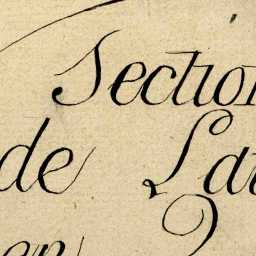 Section
de La
en 2